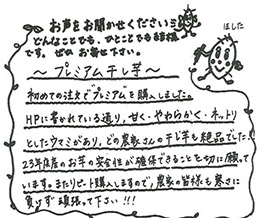 お声をお聞かせください
どんなことでも、ひとことでも結構
です。ぜひ お寄せ下さい。
ほした
～プレミアム干し芋～
初めての注文でプレミアムを購入しました。
HPに書かれている通り、甘く・やわらかく・ネットリ
としたウマミがあり、どの農家さんの干し芋も絶品でした!!
23年度産のお芋の安全性が確保できることを切に願って
います。またリピート購入しますので、農家の皆様も寒さに
負けず頑張って下さい!!!